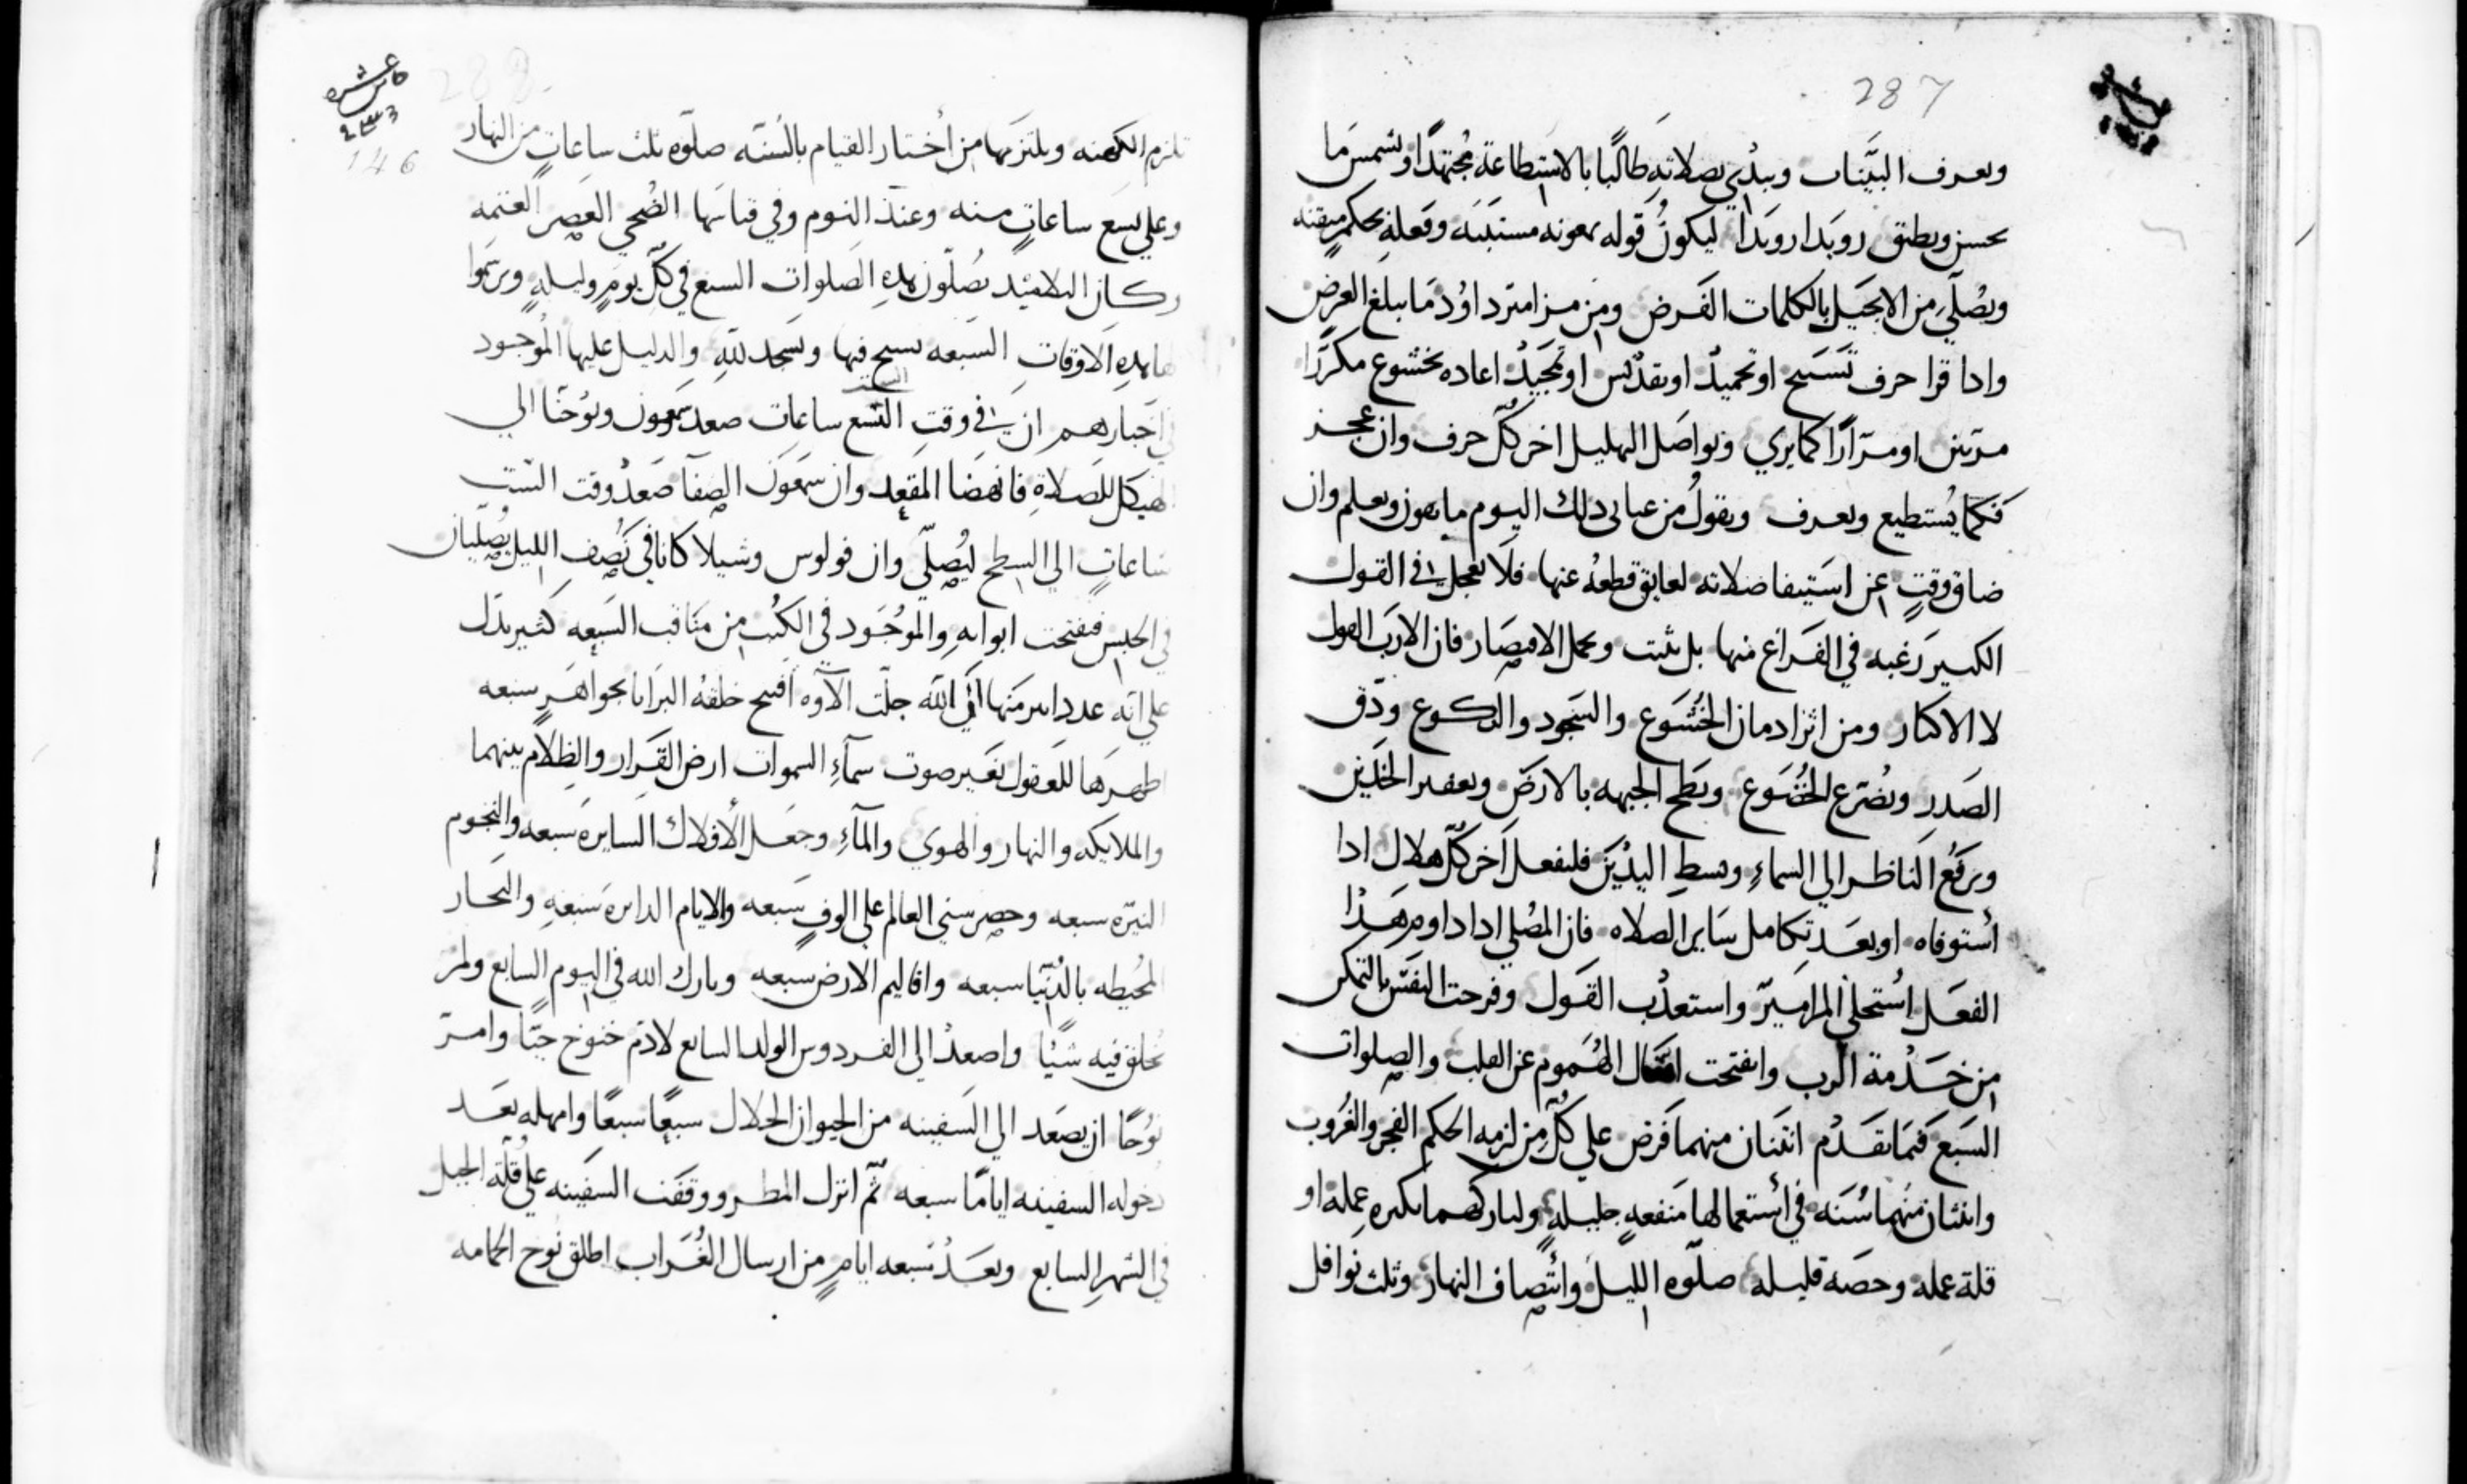 287
ويعرف البينات ويبدي بصلاته طالبا بالاستطاعة مجتهدا وتشمس ما
يحسن وينطق رويدا رويدا ليكون قوله بمعونه مستبينه وفعله بحكم متقنه
ويصلي من الانجيل بالكلمات الفرض ومن مزامير داود ما يبلغ الغرض
واذا قرا حرف تسبيح او تحميد او تقديس او تمجيد اعاده بخشوع مكررا
مرتين او مرارا كما يري ويواصل الهليل اخر كل حرف وان عجز
فكما يستطيع ويعرف ويقول من عبا بي ذلك اليوم ما يعون ويعلم وان
ضاق وقت عن استيفا صلاته لعايق قطعه عنها فلا يعجل في القول
الكبير رغبه في الفراغ منها بل يثبت ويحمل الاقتصار فان الارب القول
لا الاكثار ومن اثر ادمان الخشوع والسجود والركوع ودق
الصدر وتضرع الخضوع وبطح الجبهه بالارض وتعفير الخدين
ورفع الناظر الي السماء وبسط اليدين فليفعل اخر كل هلال اذا
استوفاه او بعد تكامل ساير الصلاه فان المصلي اذا داوم هذا
الفعل استحلي المزامير واستعذب القول وفرحت النفس بالتمكن
من خدمة الرب وانفتحت اقفال الهموم عن القلب والصلوات
السبع كما تقدم اثنتان منهما فرض علي كل من لزمه الحكم الفجر والغروب
واثنتان منهما سنه في استعمالها منفعه جليله ولتاركهما بكبره عمله او
قلة عمله وحصه قليله صلوه الليل وانتصاف النهار وثلث نوافل
288
146
تلزم الكهنه ويلتزمها من اختار القيام بالسنه صلوه ثلث ساعات من النهار
وعلي تسع ساعات منه وعند النوم وفي قياسها الضحي العصر العتمه
وكان التلاميذ يصلون هذه الصلوات السبع في كل يوم وليله ويرسموا
هذه الاوقات السبعه يسبح فيها ويسجد لله والدليل عليها الموجود
في اخبارهم ان في وقت التسع ساعات صعد سمعون ويوحنا الي
الهيكل للصلاة فانهضا المقعد وان سمعون الصفا صعد وقت الست
ساعات الي السطح ليصلي وان فولوس وشيلا كانا في نصف الليل يصليان
في الحبس ففتحت ابوابه والموجود في الكتب من مناقب السبعه كثير يدل
علي انه عدد امر منها ان الله جلت الاوه افتتح خلقه البرايا بجواهر سبعه
اظهرها للعقول بغير صوت سماء السموات ارض القرار والظلام بينهما
والملايكه والنهار والهوي والماء وجعل الافلاك السايرة سبعه والنجوم
النيره سبعه وحصر سني العالم علي الوف سبعه والايام الدايره سبعه والبحار
المحيطه بالدنيا سبعه واقاليم الارض سبعه وبارك الله في اليوم السابع ولم
يخلق فيه شيا واصعد الي الفردوس الولد السابع لادم خنوخ حيا وامر
نوحا ان يصعد الي السفينه من الحيوان الحلال سبعا سبعا وامهله بعد
دخوله السفينه اياما سبعه ثم انزل المطر ووقفت السفينه علي قلة الجبل
في الشهر السابع وبعد سبعه ايام من ارسال الغراب اطلق نوح الحمامه